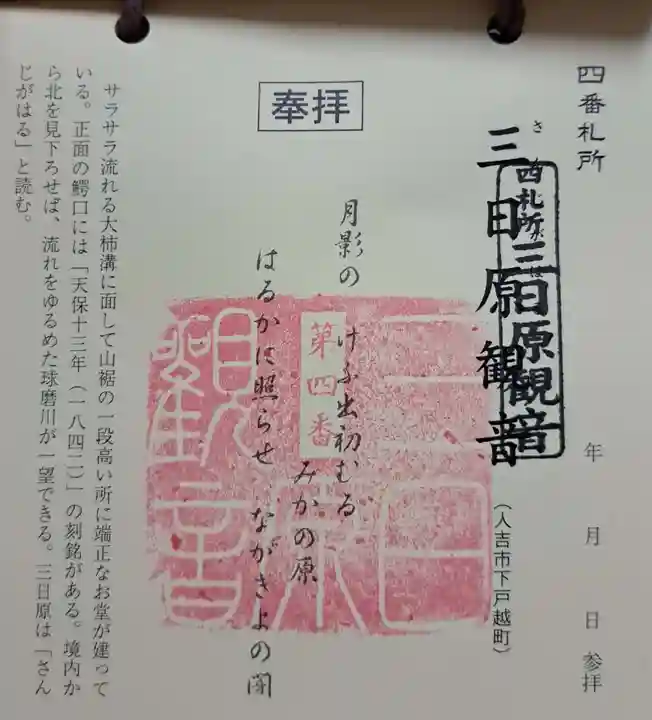 四番札所
年 月 日 参拝
四札所 三日原観音
三日原観音
(人吉市下戸越町)
奉拝
月影の けふ出初むる みかの原
はるかに照らせ ながきよの闇
第四番
三日原観音
サラサラ流れる大柿溝に面して山裾の一段高い所に端正なお堂が建って
いる。正面の鰐口には「天保十三年(一八四二)」の刻銘がある。境内か
ら北を見下ろせば、流れをゆるめた球磨川が一望できる。三日原は「さん
じがはる」と読む。